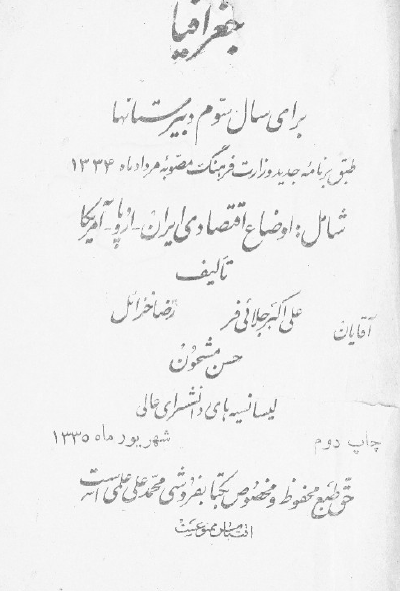 جغرافیا
برای سال سوّم دبیرستانها
طبق برنامه جدید وزارت فرهنگ مصوبهٔ مرداد ماه ۱۳۳۴
شامل: اوضاع اقتصادی ایران - اروپا - آمریکا
تألیف
آقایان علی اکبر جلائی فر رضا خزائل
حسن مشحون
لیسانسیه های دانشسرای عالی
چاپ دوم شهریور ماه ۱۳۳۵
حق طبع محفوظ و مخصوص کتابفروشی محمد علی علمی است